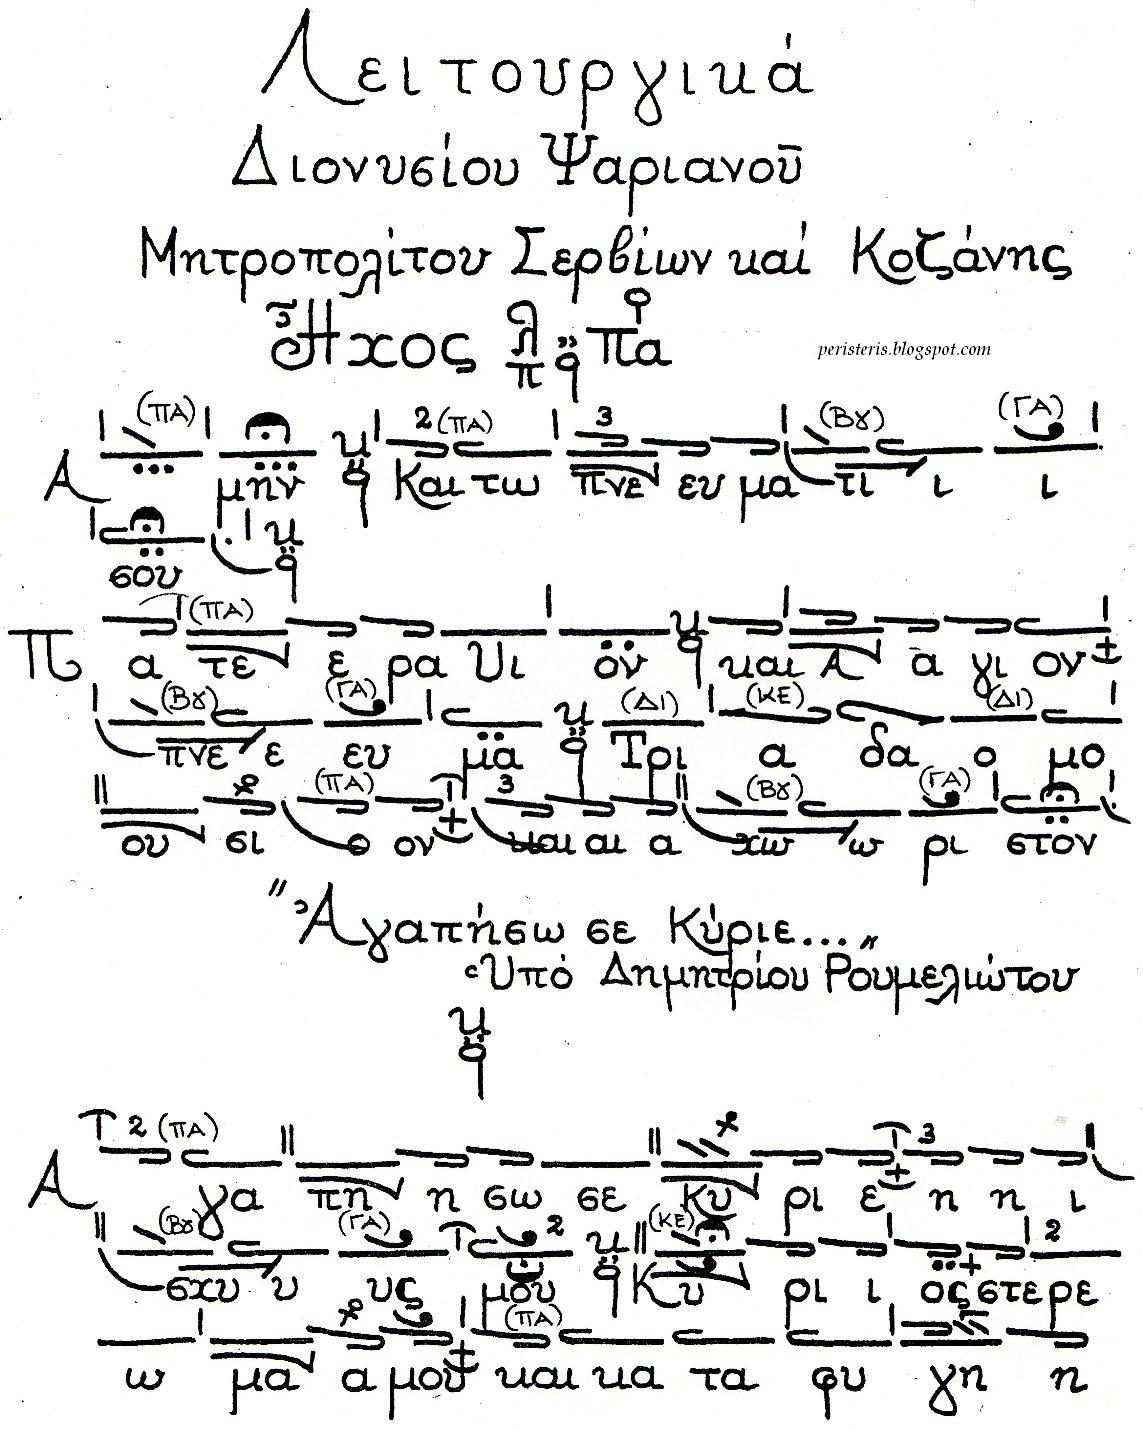 Λειτουργικά
Διονυσίου Ψαριανοῦ
Μητροπολίτου Σερβίων καί Κοζάνης
Ἦχος λ π q Πα
peristeris.blogspot.com
(ΠΑ) 2 (ΠΑ) 3 (Βȣ) (ΓΑ)
Α μην Και τω πνε ευ μα τι ι ι
σου
(ΠΑ)
Π α τε ε ρα Υι όν και Α α γι ον
(Βȣ) (ΓΑ) (ΔΙ) (ΚΕ) (ΔΙ)
πνε ε ευ μα Τρι α δα ο μο
(ΠΑ) 3 (Βȣ) (ΓΑ)
ου σι ο ον και αι α χω ω ρι στον
"Ἀγαπήσω σε Κύριε..."
Ὑπό Δημητρίου Ρουμελιώτου
2 (ΠΑ) 3
Α γα πη η σω σε Κυ ρι ε η η ι
(Βȣ) (ΓΑ) 2 (ΚΕ) 2
σχυ υ υς μου Κυ ρι ι ος στε ρε
(ΠΑ)
ω μα α μου και κα τα φυ γη η